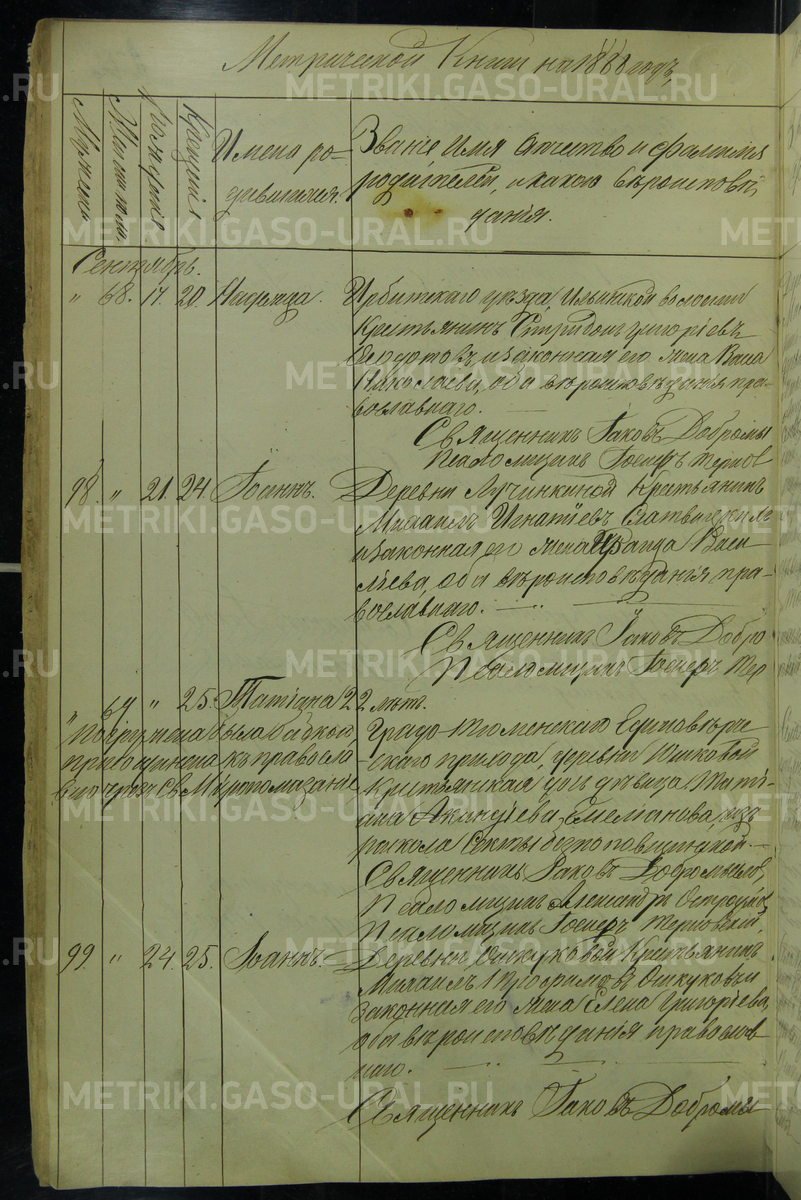 Метрической Книги на 1881 годъ,
Мужеска
Женска
Рожденіе
Крещенія
Имена ро-
дившихся.
Званіе имя отчество и фамилия
родителей, и какого вѣроисповѣ
данія.
Сентябрь.
" 68. 17. 20. Надежда. Ирбитскаго уѣзда, Ильинской волости
Крестьянинъ Спиридонъ Григоріевъ
Ѳедотовъ и законная его жена Васса
Николаева, оба вѣроисповѣданія пра-
вославнаго.
Священникъ Іаковъ Добромы
Псаломщикъ Іосифъ Тернов
98. " 21. 24. Іоаннъ. Деревни Лучинкиной Крестьянинъ
Михаилъ Игнатіевъ
и законная его жена Ираида Васи
льева, оба вѣроисповѣданія пра-
вославнаго.
Священникъ Іаковъ Добро
Псаломщикъ Іосифъ Тер
" 69 " 25. Татіана 22 лѣтъ.
присоединена къ правосла
вію чрезъ Св. Мѵропомазаніе
Градо-Тюменскаго Единовѣрче
скаго прихода, деревни
Крестьянская дочь дѣвица Таті-
ана Емеліанова, изъ
раскола секты безпоповщинской.
Священникъ Іаковъ Добромысловъ,
Псаломщикъ Александръ Остроумов,
Псаломщикъ Іосифъ Терновскій,
99. " 24. 25. Іоаннъ. Деревни Ошкуковой Крестьянинъ
Михаилъ Трофимовъ Ошкуковъ и
законная его жена Елена Григоріева,
оба вѣроисповѣданія православ-
наго.
Священникъ Іаковъ Добромы
METRIKI.GASO-URAL.RU